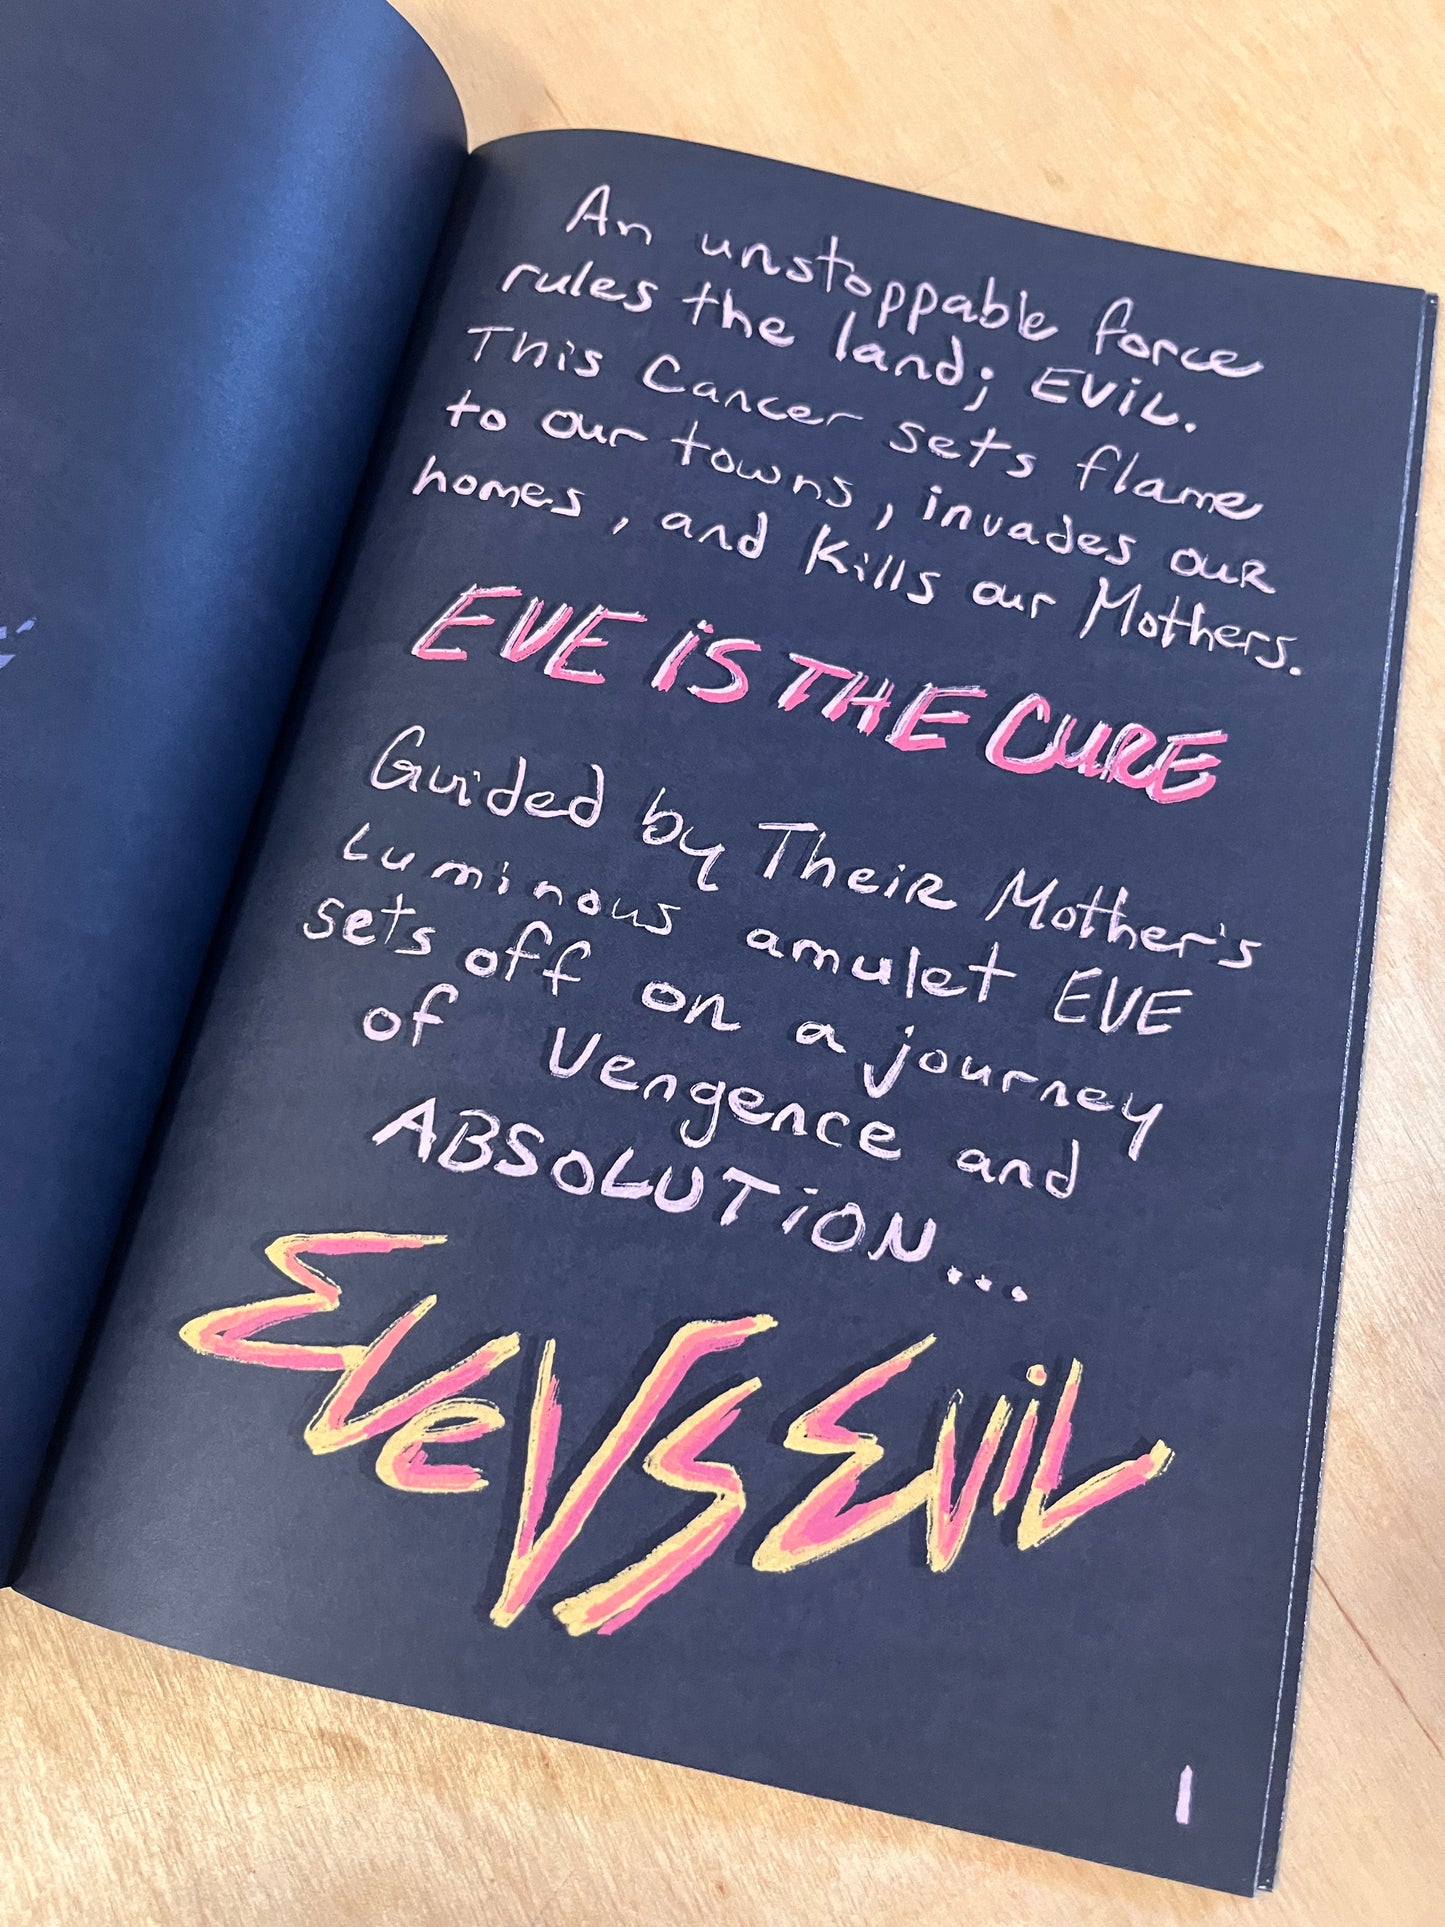 An unstoppable force
rules the land; EViL.
This Cancer sets flame
to our towns, invades our
homes, and kills our Mothers.
EVE iS THE CURE
Guided by Their Mother's
Luminous amulet EVE
sets off on a journey
of Vengence and
ABSOLUTiON...
EVe VS EViL
1